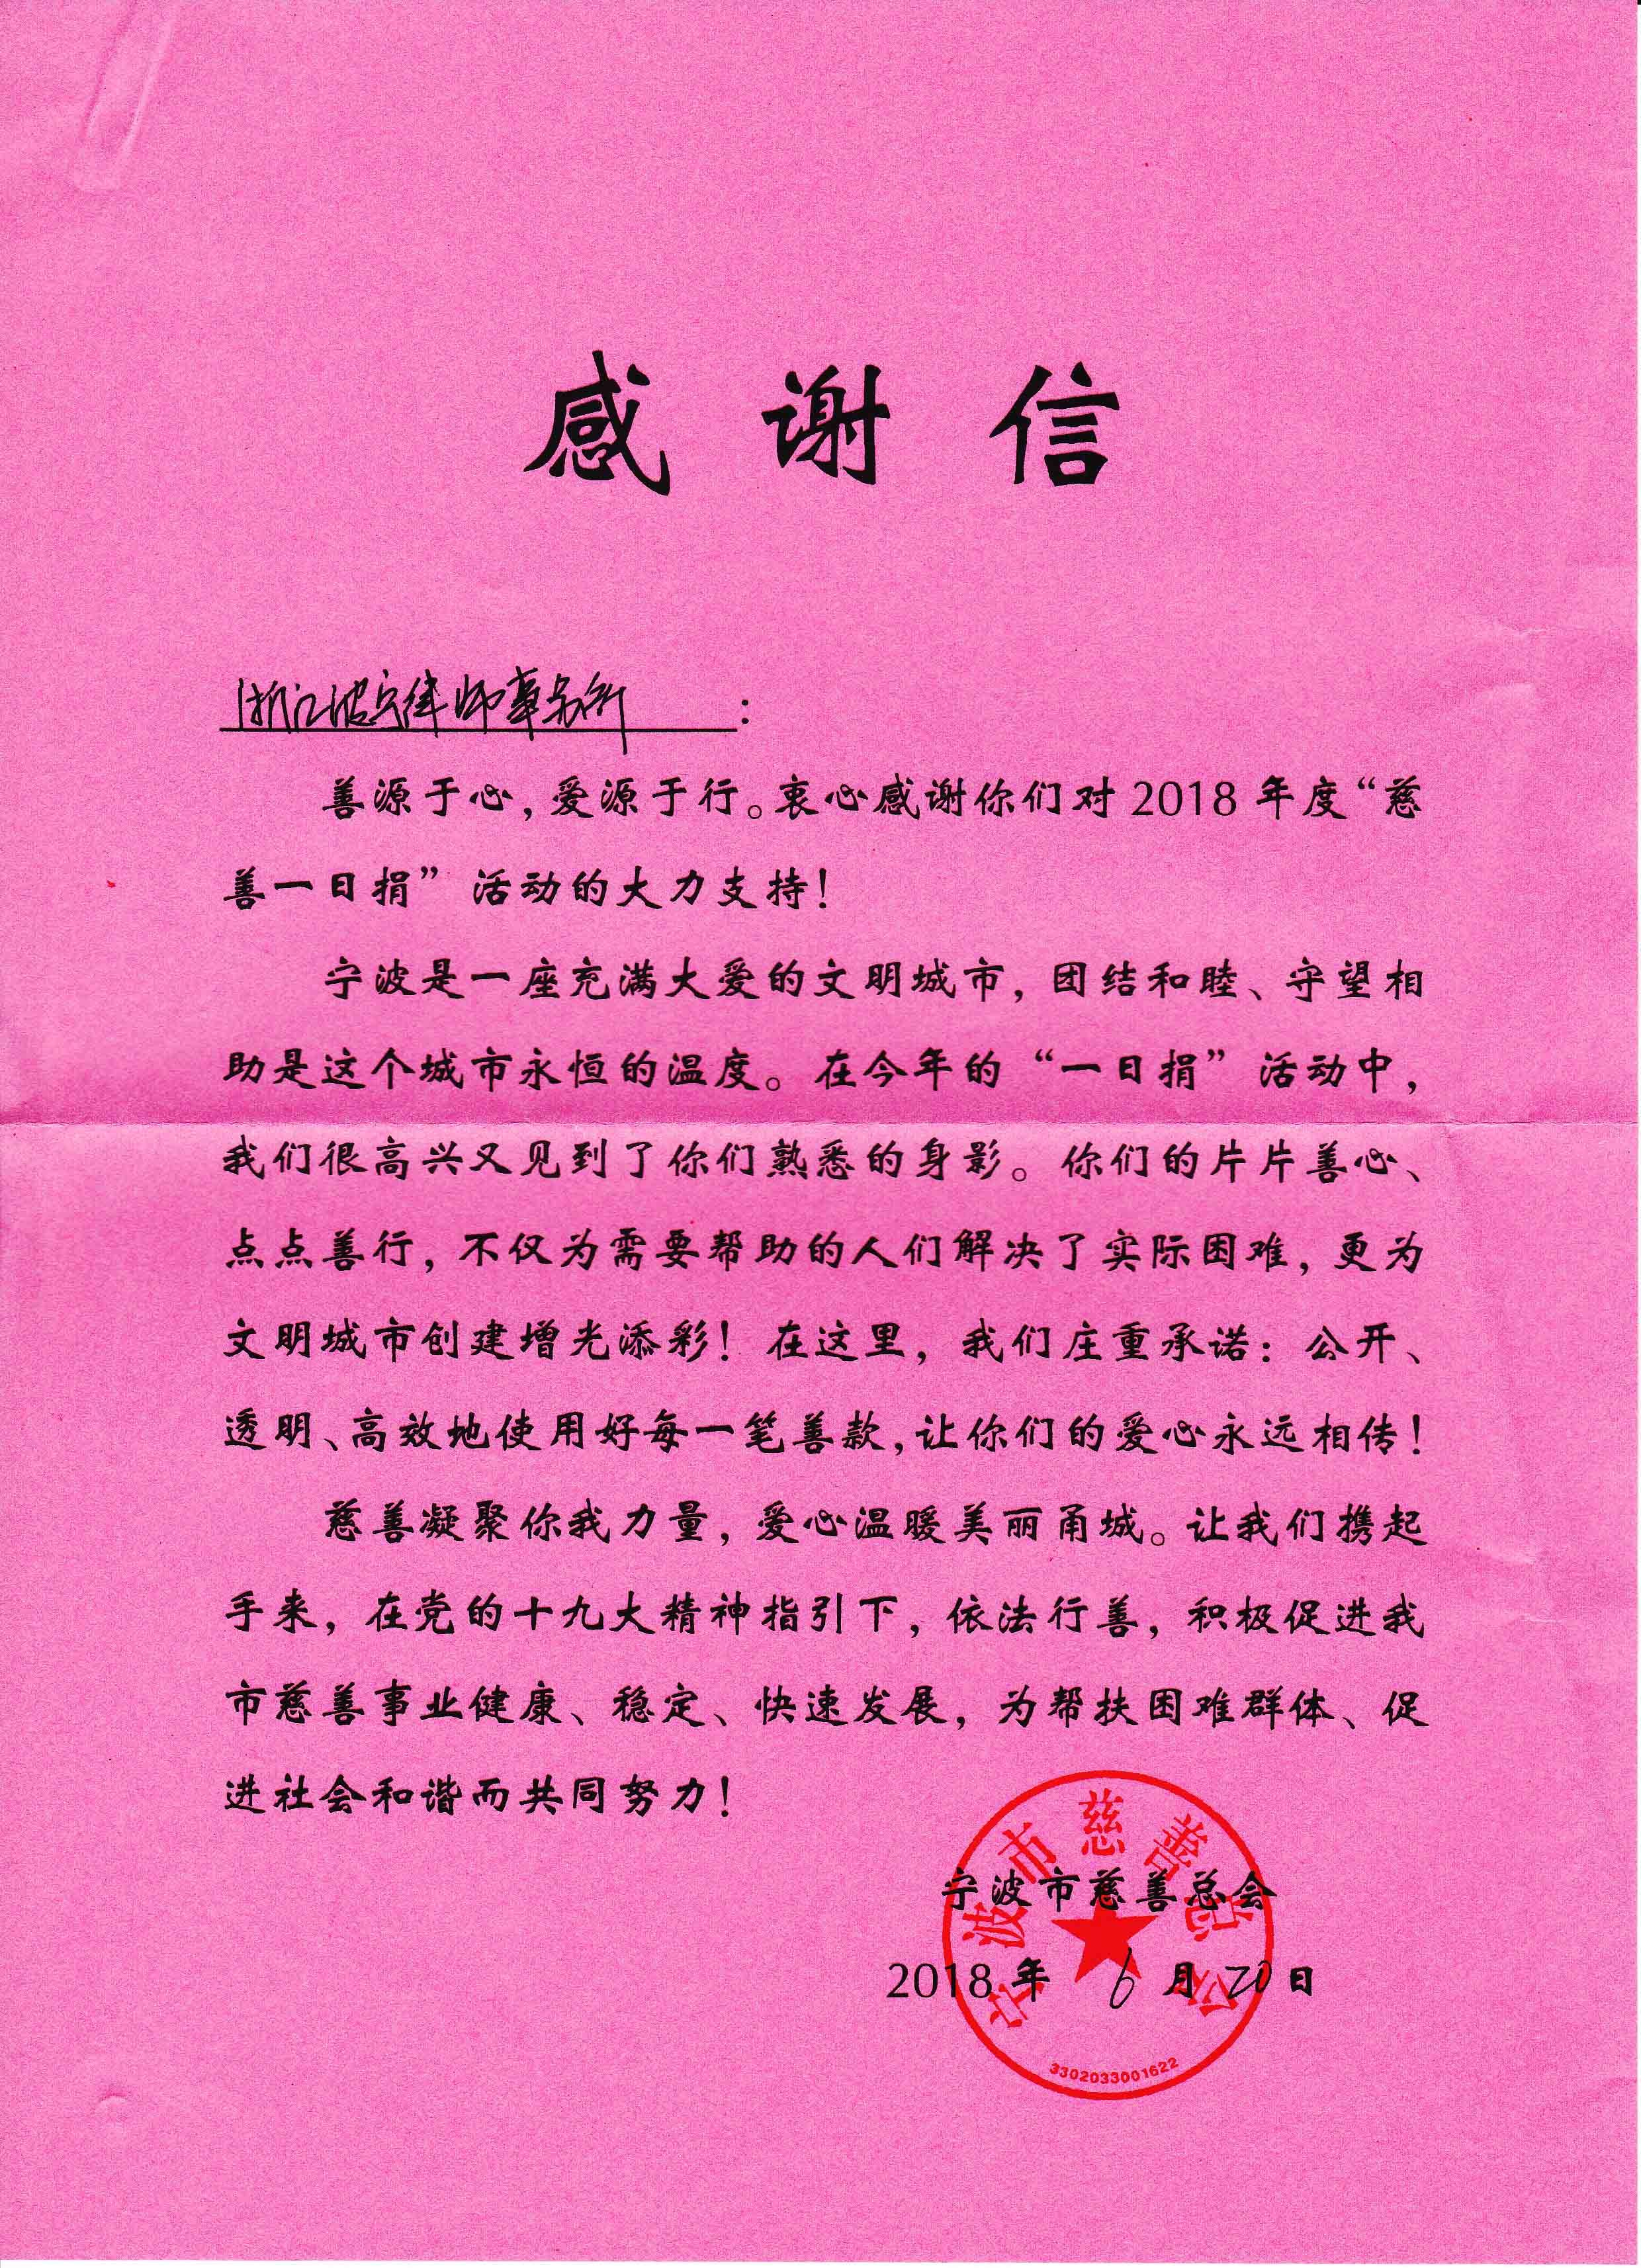 感谢信
浙江波宁律师事务所：
善源于心，爱源于行。衷心感谢你们对2018年度“慈
善一日捐”活动的大力支持！
宁波是一座充满大爱的文明城市，团结和睦、守望相
助是这个城市永恒的温度。在今年的“一日捐”活动中，
我们很高兴又见到了你们熟悉的身影。你们的片片善心、
点点善行，不仅为需要帮助的人们解决了实际困难，更为
文明城市创建增光添彩！在这里，我们庄重承诺：公开、
透明、高效地使用好每一笔善款，让你们的爱心永远相传！
慈善凝聚你我力量，爱心温暖美丽甬城。让我们携起
手来，在党的十九大精神指引下，依法行善，积极促进我
市慈善事业健康、稳定、快速发展，为帮扶困难群体、促
进社会和谐而共同努力！
宁波市慈善总会
2018年6月20日
宁波市慈善总会
3302033001622